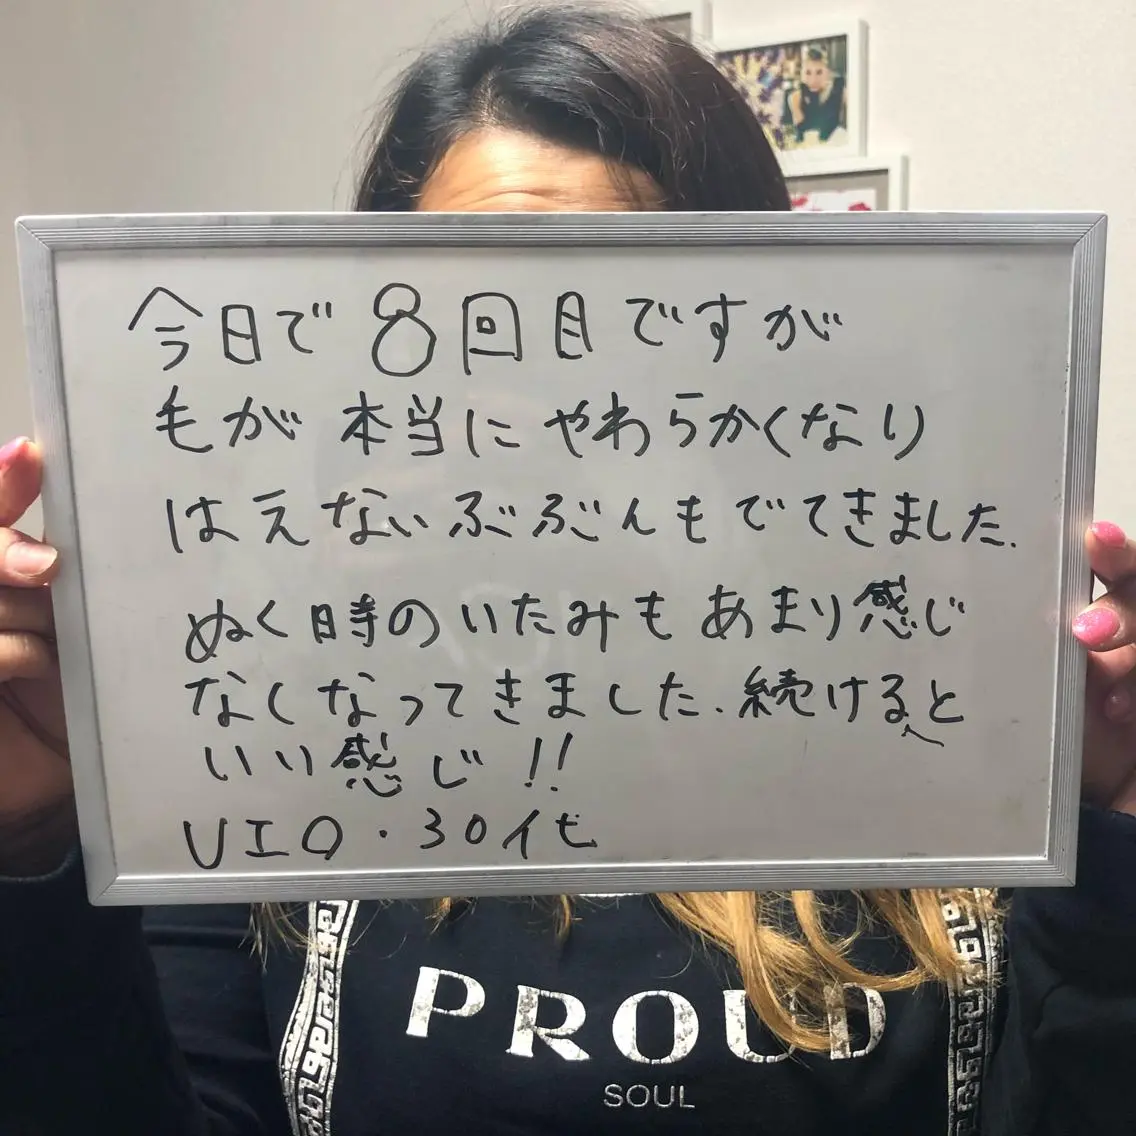 今日で 8回目ですが
毛が 本当に やわらかくなり
はえないぶぶんもでてきました.
ぬく時のいたみもあまり感じ
なくなってきました. 続けると
いい感じ!!
VIO・30代
PROUD
SOUL